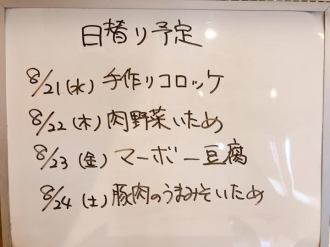 日替り予定
8/21(水)手作りコロッケ
8/22(木)肉野菜いため
8/23(金)マーボー豆腐
8/24(土)豚肉のうまみそいため